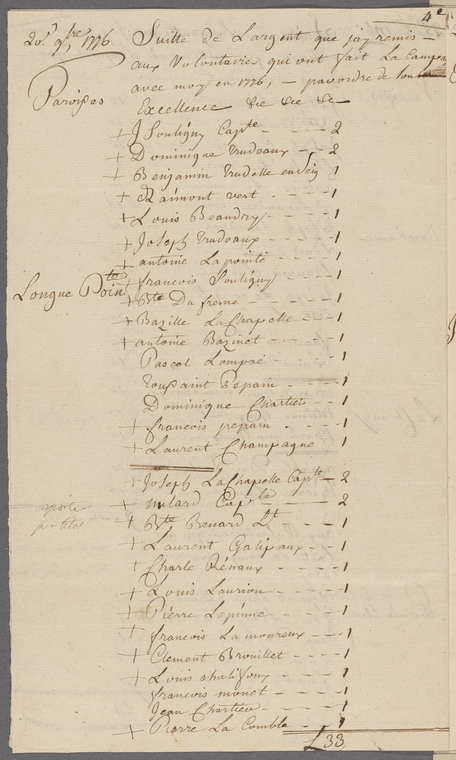 4e
20.r 9bre 1776
Suitte de Largent que jay remis
aux Volontaires qui ont fait La Campag
avec moy en 1776, — par ordre de
Paroises
Excellence &c &c &c
+ J Souligny Capte - - - 2
+ Dominique Trudeaux - - 2
+ Benjamin Trudelle 1
+ Raimont vert - - - 1
+ Louis Beaudry - - - - 1
+ Joseph Trudeaux - - - - 1
+ antoine Lapointe - - - 1
Longue Pointe
+ francois Souligny - - - 1
+ Bte Dufresne - - - - 1
+ Bazille LaChapelle - - - 1
+ antoine Bazinet - - - - 1
Pascal Lompré - - - 1
Toussaint Pepain - - - 1
Dominique Chartier - - - 1
+ francois pepain - - - 1
+ Laurent Champagne 1
+ Joseph LaChapelle Capte - 2
+ Capte - - - 2
+ Bte Benard Lt - - - 1
+ Laurent Galipaux - - 1
+ Charle Rénaux - - - - 1
+ Louis Laurion - - - - 1
+ Pierre Lepinne - - - 1
+ francois Lamoureux - - - 1
+ Clement Brouillet - - - 1
+ Louis chalifoux - - - 1
francois monet - - - - 1
Jean Chartier - - - - 1
+ Pierre La Comble - - 1
£33